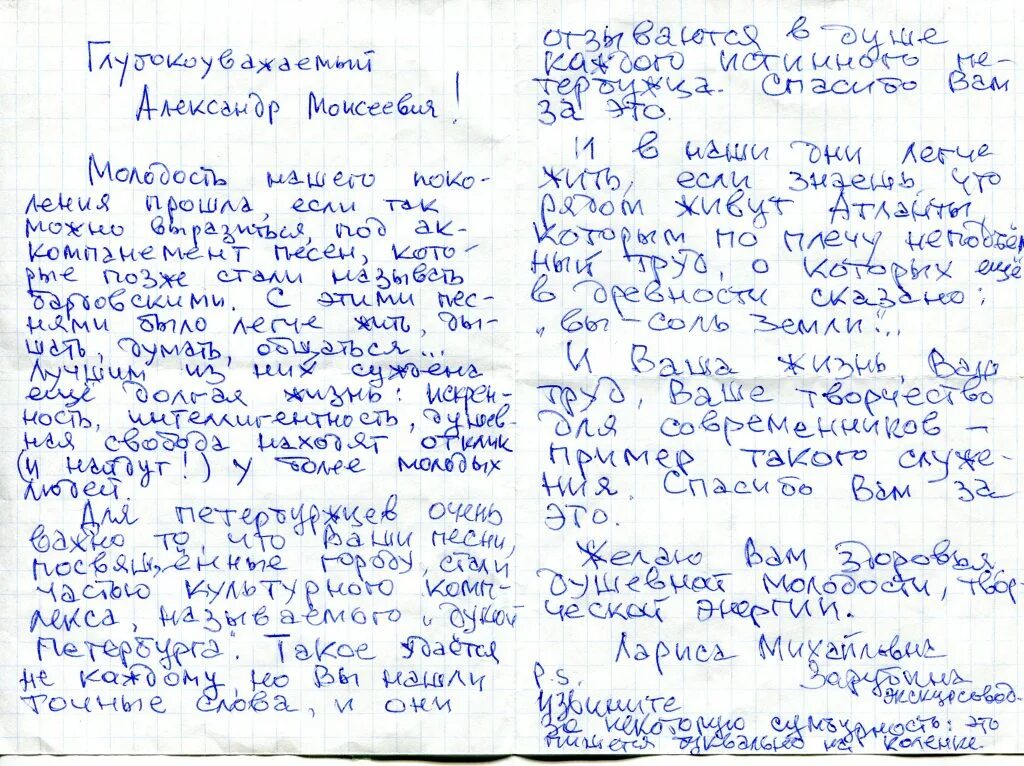 Глубокоуважаемый
Александр Моисеевич!
Молодость нашего поко-
ления прошла, если так
можно выразиться, под ак-
компанемент песен, кото-
рые позже стали называть
бардовскими. С этими пес-
нями было легче жить, ды-
шать, думать, общаться...
Лучшим из них суждена
ещё долгая жизнь: искрен-
ность, интеллигентность, душев-
ная свобода находят отклик
(и найдут!) у более молодых
людей.
Для петербуржцев очень
важно то, что Ваши песни,
посвящённые городу, стали
частью культурного комп-
лекса, называемого „душой
Петербурга". Такое удаётся
не каждому, но Вы нашли
точные слова, и они
отзываются в душе
каждого истинного пе-
тербужца. Спасибо Вам
за это.
И в наши дни легче
жить, если знаешь, что
рядом живут Атланты,
которым по плечу неподъём-
ный труд, о которых ещё
в древности сказано:
„вы-соль земли"...
И Ваша жизнь, Ваш
труд, Ваше творчество
для современников –
пример такого служе-
ния. Спасибо Вам за
это.
Желаю Вам здоровья,
душевной молодости, твор-
ческой энергии.
Лариса Михайловна
Зарубина
экскурсовод.
P.S.
Извините
за некоторую сумбурность: это
пишется буквально на коленке.